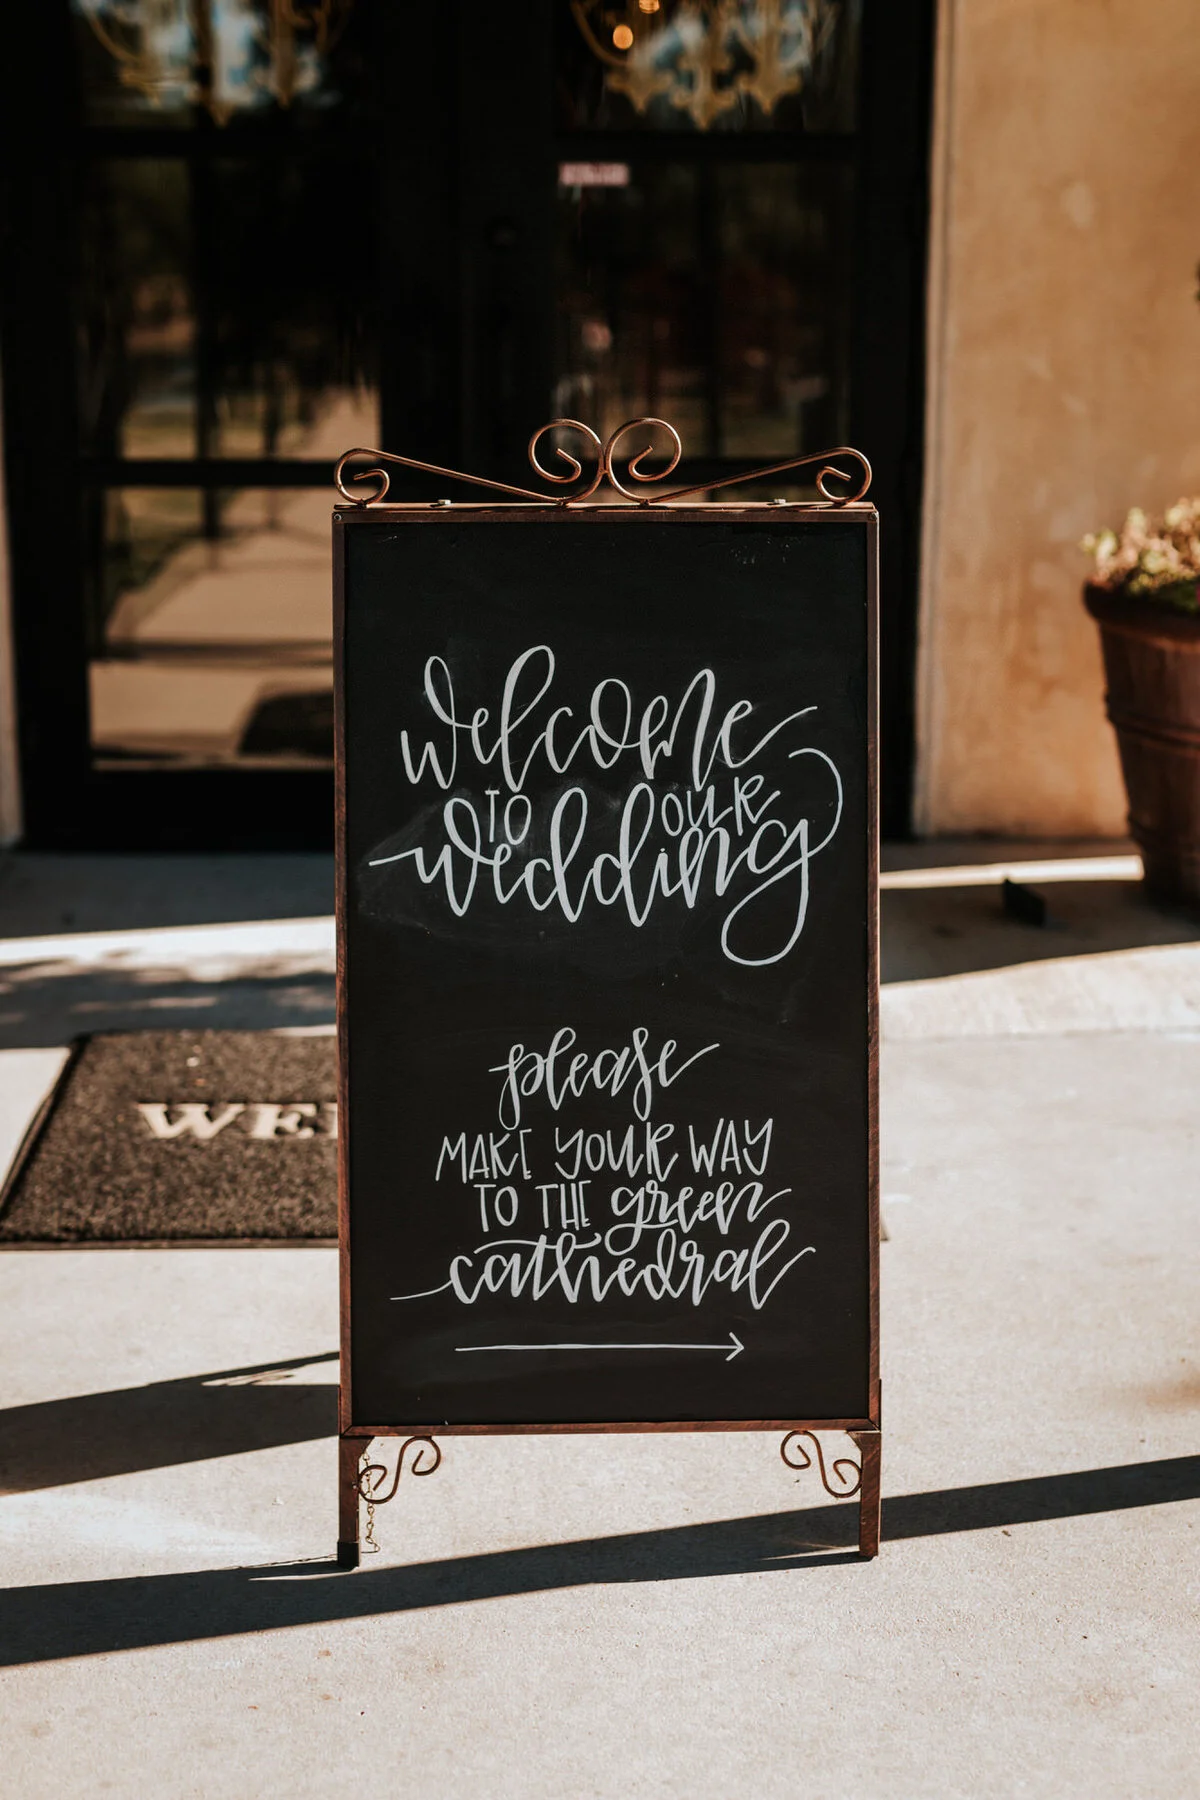 welcome
TO OUR
wedding
please
MAKE YOUR WAY
TO THE green
cathedral
WEL